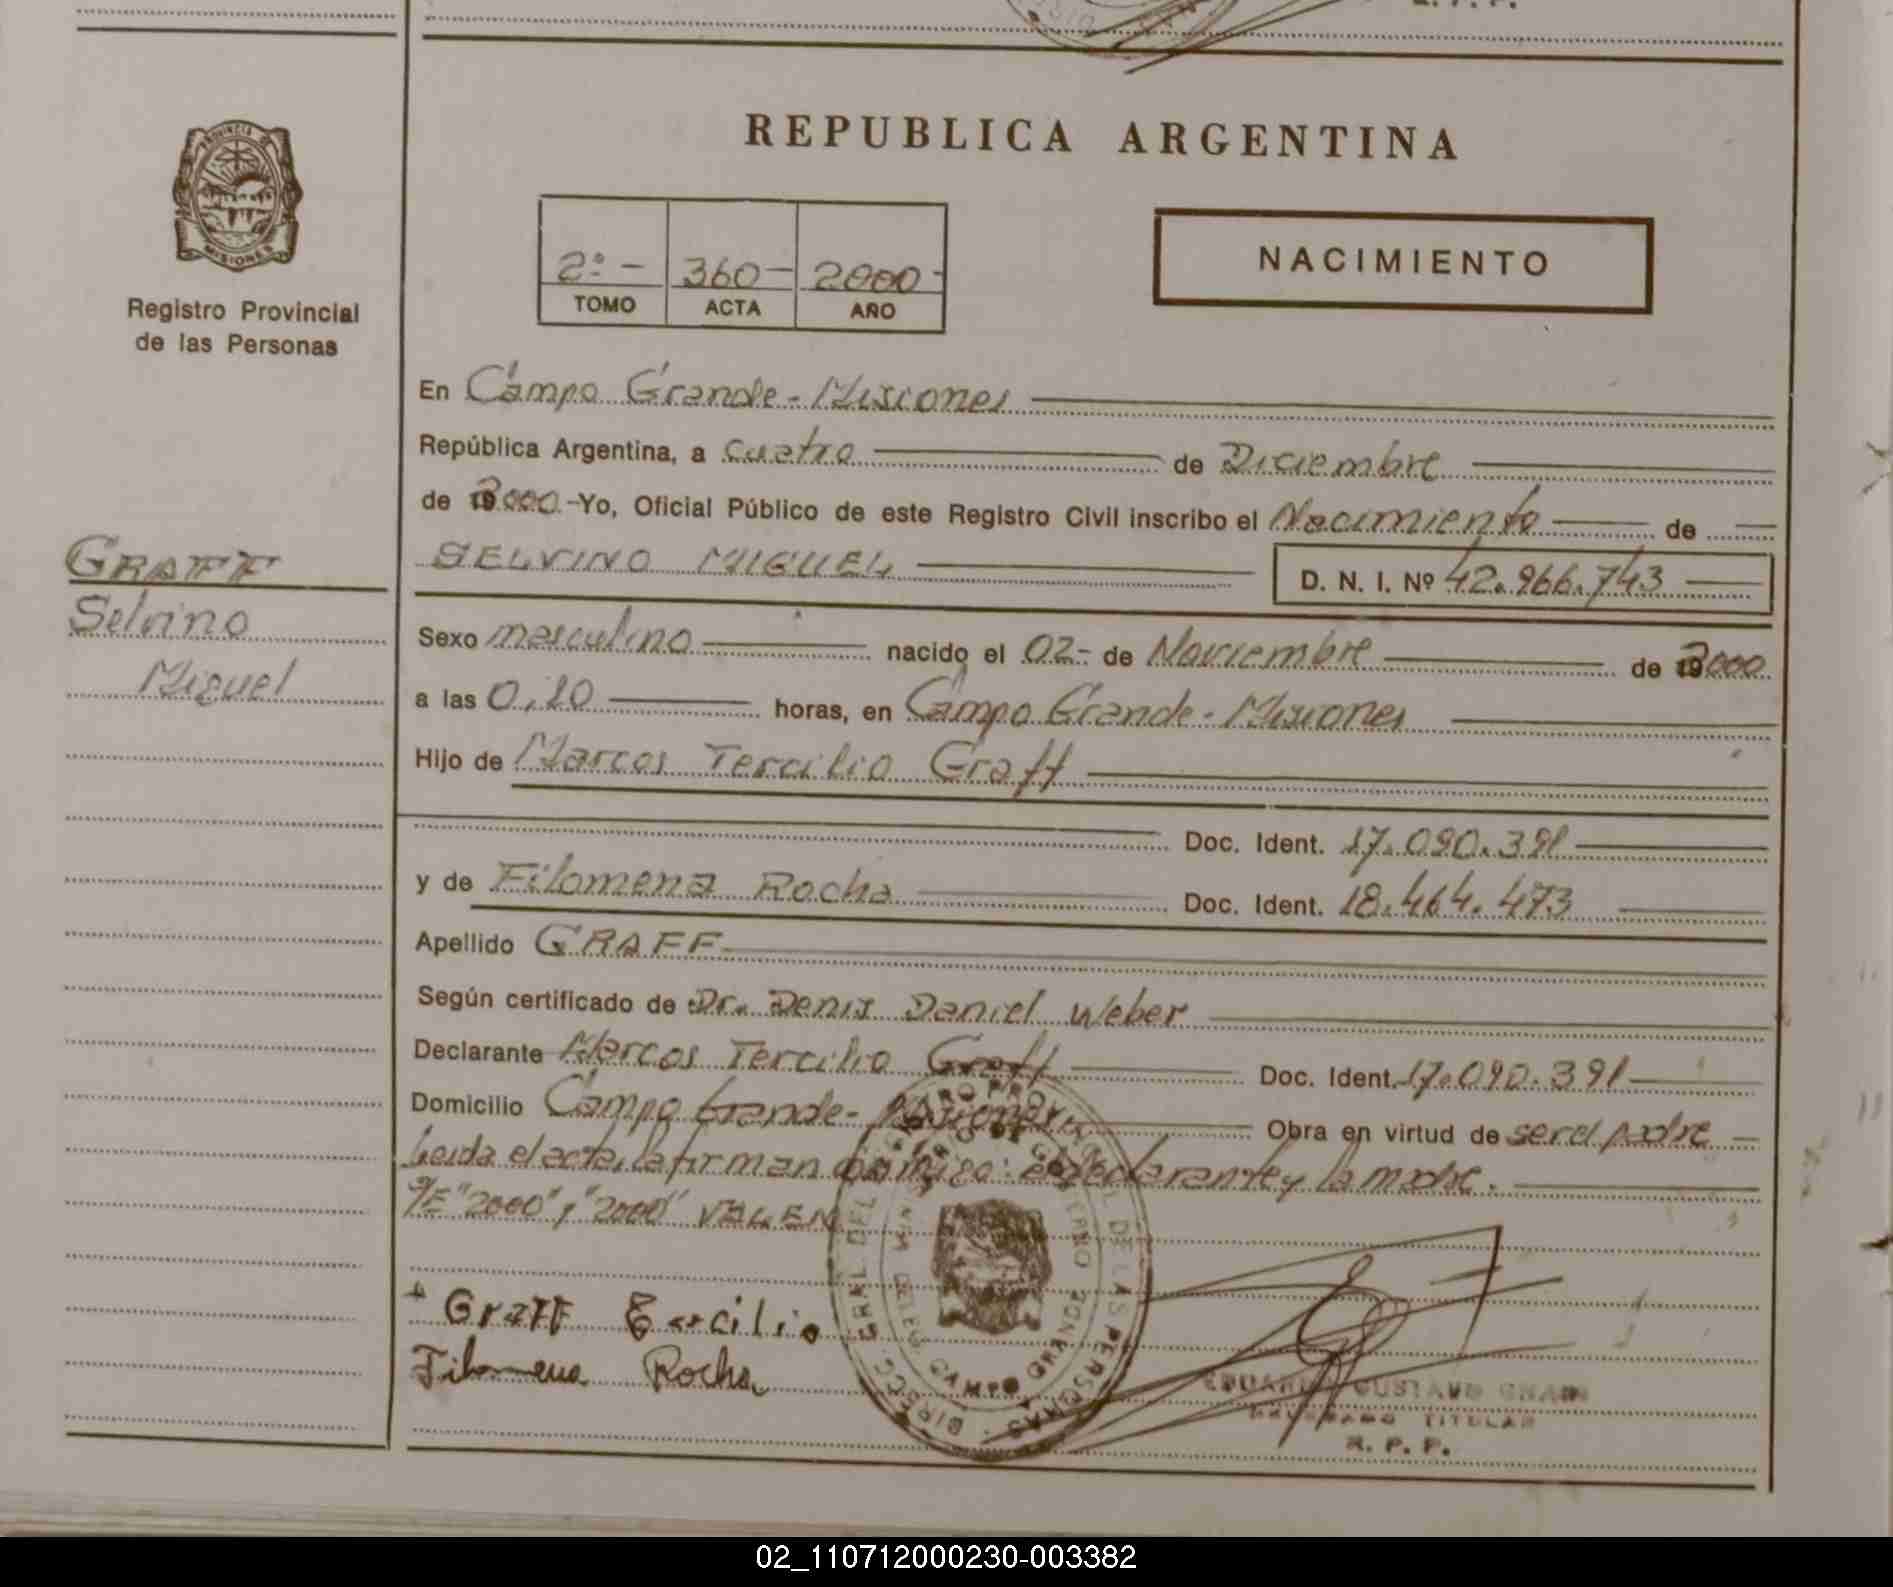 R. P. P.
REPUBLICA ARGENTINA
PROVINCIA DE
MISIONES
Registro Provincial
de las Personas
2º - 360 - 2000 -
TOMO ACTA AÑO
NACIMIENTO
En Campo Grande - Misiones
República Argentina, a cuatro de Diciembre
de 2000 - Yo, Oficial Público de este Registro Civil inscribo el Nacimiento de
SELVINO MIGUEL D. N. I. Nº 42.966.743
GRAFF
Selvino
Miguel
Sexo masculino nacido el 02 - de Noviembre de 2000
a las 0,20 horas, en Campo Grande - Misiones
Hijo de Marcos Tercilio Graff
Doc. Ident. 17.090.391
y de Filomena Rocha Doc. Ident. 18.464.473
Apellido GRAFF
Según certificado de Dr. Denis Daniel Weber
Declarante Marcos Tercilio Graff Doc. Ident. 17.090.391
Domicilio Campo Grande - Misiones Obra en virtud de ser el padre
Leida el acta, la firman conmigo: el declarante y la madre.
S/E "2000", "2000" VALEN
Graff Tercilio
Filomena Rocha
DIRECC. GRAL. DEL REGISTRO PROVINCIAL DE LAS PERSONAS
CAMPO GRANDE
EDUARDO GUSTAVO
DELEGADO TITULAR
R. P. P.
02_110712000230-003382